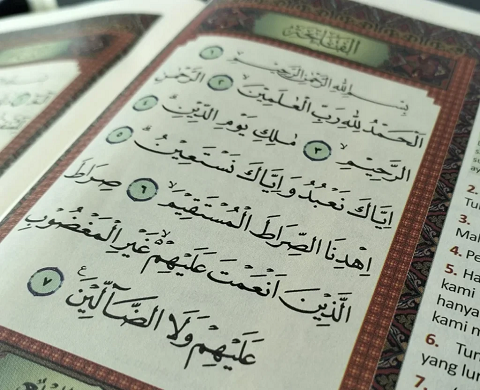 بِسْمِ اللّٰهِ الرَّحْمٰنِ الرَّحِيْمِ ١
اَلْحَمْدُ لِلّٰهِ رَبِّ الْعٰلَمِيْنَۙ ٢ الرَّحْمٰنِ
الرَّحِيْمِۙ ٣ مٰلِكِ يَوْمِ الدِّيْنِۗ ٤
اِيَّاكَ نَعْبُدُ وَاِيَّاكَ نَسْتَعِيْنُۗ ٥
اِهْدِنَا الصِّرَاطَ الْمُسْتَقِيْمَۙ ٦ صِرَاطَ
الَّذِيْنَ اَنْعَمْتَ عَلَيْهِمْ ەۙ غَيْرِ الْمَغْضُوْبِ
عَلَيْهِمْ وَلَا الضَّاۤلِّيْنَࣖ ٧
2.
3.
4. Pe
5. Ha
kami
hanya
kami m
6. Tun
yang lur
7.